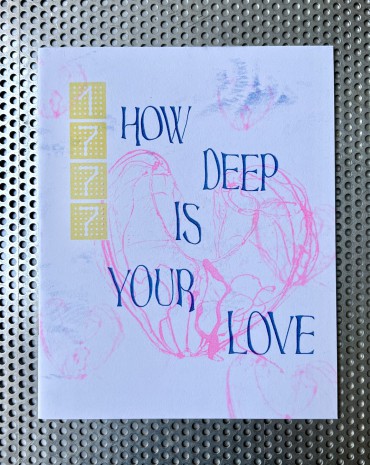 HOW
DEEP
IS
YOUR
LOVE